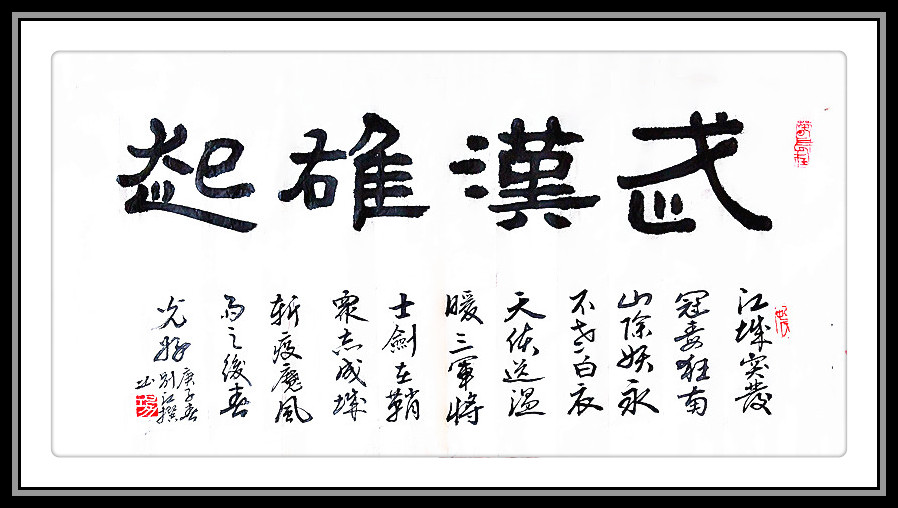 武漢雄起
江城突發
冠毒狂南
山除妖永
不老白衣
天使送溫
暖三軍將
士劍在鞘
眾志成城
斬疫魔風
雨之後春
光好
庚子春
別江撰